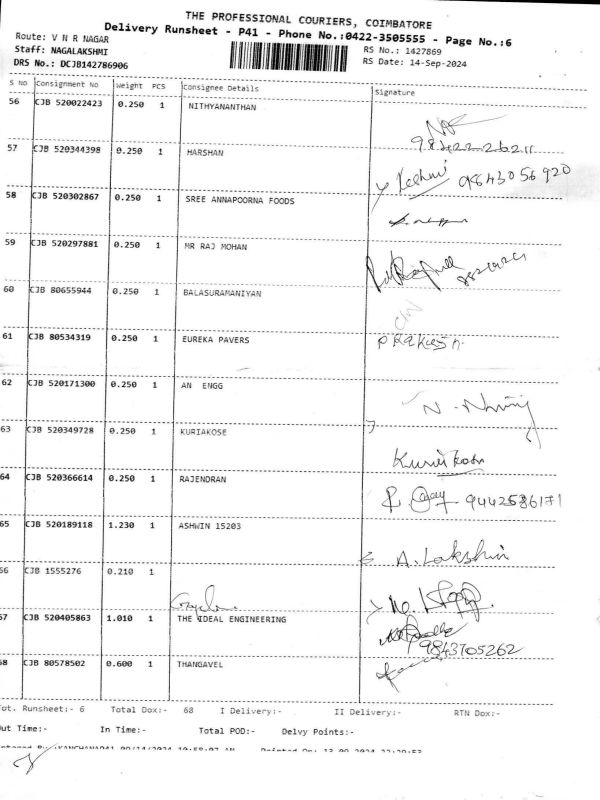 THE PROFESSIONAL COURIERS, COIMBATORE
Delivery Runsheet - P41 - Phone No.:0422-3505555 - Page No.:6
Route: V N R NAGAR
Staff: NAGALAKSHMI
DRS No.: DCJB142786906
RS No.: 1427869
RS Date: 14-Sep-2024
S NO Consignment No Weight PCS Consignee Details Signature
56 CJB 520022423 0.250 1 NITHYANANTHAN
98422 26211
57 CJB 520344398 0.250 1 HARSHAN
Leshmi 9843056920
58 CJB 520302867 0.250 1 SREE ANNAPOORNA FOODS
59 CJB 520297881 0.250 1 MR RAJ MOHAN
60 CJB 80655944 0.250 1 BALASURAMANIYAN
61 CJB 80534319 0.250 1 EUREKA PAVERS
Prakash.
62 CJB 520171300 0.250 1 AN ENGG
63 CJB 520349728 0.250 1 KURIAKOSE
Kuriakose
64 CJB 520366614 0.250 1 RAJENDRAN
9442586171
65 CJB 520189118 1.230 1 ASHWIN 15203
A. Lakshmi
66 CJB 1555276 0.210 1
67 CJB 520405863 1.010 1 THE IDEAL ENGINEERING
9843705262
68 CJB 80578502 0.600 1 THANGAVEL
Tot. Runsheet:- 6 Total Dox:- 68 I Delivery:- II Delivery:- RTN Dox:-
Out Time:- In Time:- Total POD:- Delvy Points:-